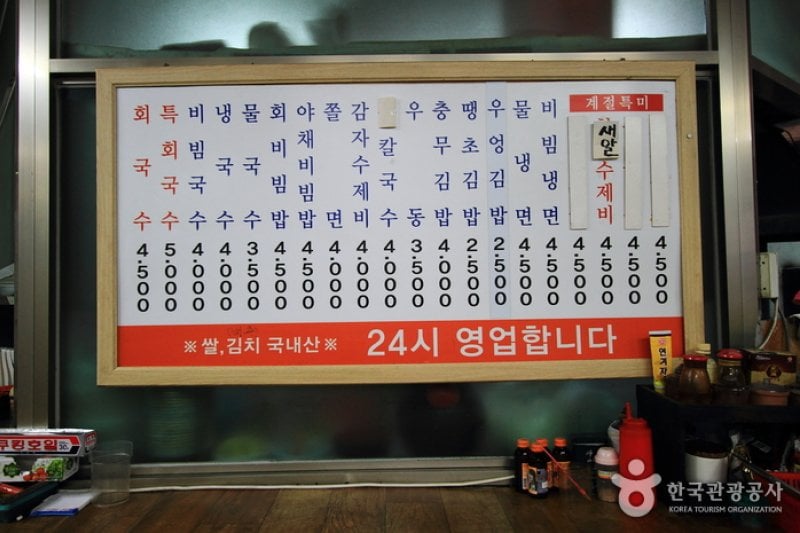 회국수 4.500
특회국수 5.000
비빔국수 4.000
냉국수 4.000
물국수 3.500
회비빔밥 4.500
야채비빔밥 4.500
쫄면 4.000
감자수제비 4.000
칼국수 4.000
우동 3.500
충무김밥 4.000
땡초김밥 2.500
우엉김밥 2.500
물냉면 4.500
비빔냉면 4.500
계절특미
4.500
새알수제비 4.500
4.500
4.500
※쌀,김치 국내산※ 24시 영업합니다
쿠킹호일
연겨자
한국관광공사
KOREA TOURISM ORGANIZATION